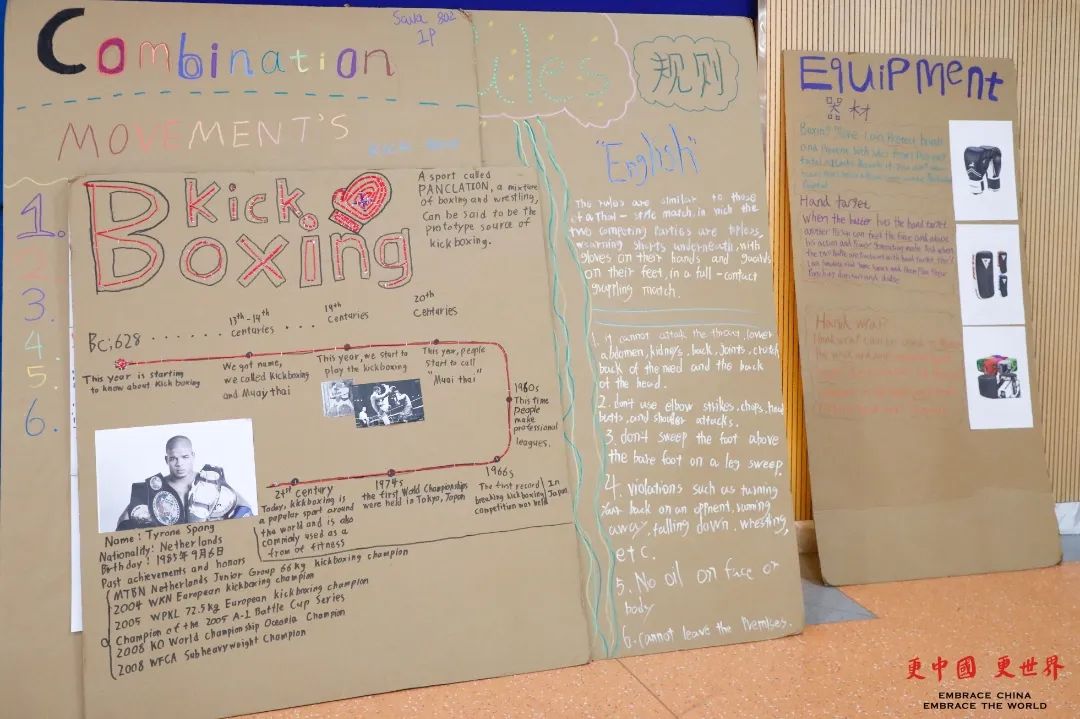 Combination
MOVEMENT'S
1.
2
3.
4.
5.
6.
Kick
Boxing
A sport called
PANCLATION, a mixture
of boxing and wrestling,
Can be said to be the
prototype source of
kick boxing.
BC;628 ......
13th-14th
centuries ....
19th
Centuries
20th
Centuries
This year is starting
to know about Kick boxing
We got name,
we called Kickboxing
and Muay thai
This year, we start to
play the kickboxing
This year, people
start to call
"Muai thai"
1980s
This time
People
make
professional
leagues.
21st Century
Today, kickboxing is
a popular sport around
the world and is also
commonly used as a
from of fitness
1974s
the first World Championships
were held in Tokyo, Japan
1966s
The first record
breaking kickboxing
competition was held
In
Japan
Name: Tyrone Spong
Nationality: Netherlands
Birthday: 1985年9月6日
Past achievements and honors
MTBN Netherlands Junior Group 66kg kickboxing champion
2004 WKN European kickboxing champion
2005 WPKL 72.5kg European kickboxing champion
Champion of the 2005 A-1 Battle Cup Series
2008 KO World Championship Oceania Champion
2008 WFCA Subheavyweight Champion
规则
"English"
The rules are similar to those
of a Thai-style match, in wich the
two competing Parties are topless,
wearning shorts underneath, with
gloves on their hands and guards
on their feet, in a full-contact
grappling match.
1. it cannot attack the throat, lower
abdomen, kidneys, back, Joints, crotch
back of the and the back
of the head.
2. don't use elbow strikes, chops, head
butts, and shoulder attacks.
3. don't sweep the foot above
the bare foot on a leg sweep.
4. violations such as turning
your back on an oppnent, running
away, falling down, wrestling,
etc.
5. No oil on face or
body
6. Cannot leave the Premises.
EQuiPMent
器材
Hand target
Hand wrap
更中國 更世界
EMBRACE CHINA
EMBRACE THE WORLD